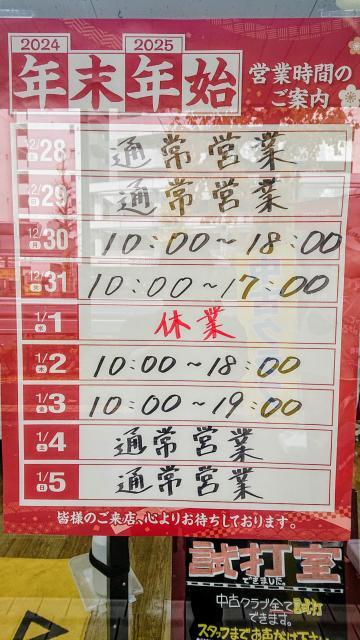 2024 2025
年末年始
営業時間の
ご案内
12/28(土) 通常営業
12/29(日) 通常営業
12/30(月) 10:00~18:00
12/31(火) 10:00~17:00
1/1(水) 休業
1/2(木) 10:00~18:00
1/3(金) 10:00~19:00
1/4(土) 通常営業
1/5(日) 通常営業
皆様のご来店、心よりお待ちしております。
試打室
できました。
中古クラブ全て試打
できます。
スタッフまでお声がけ下さい